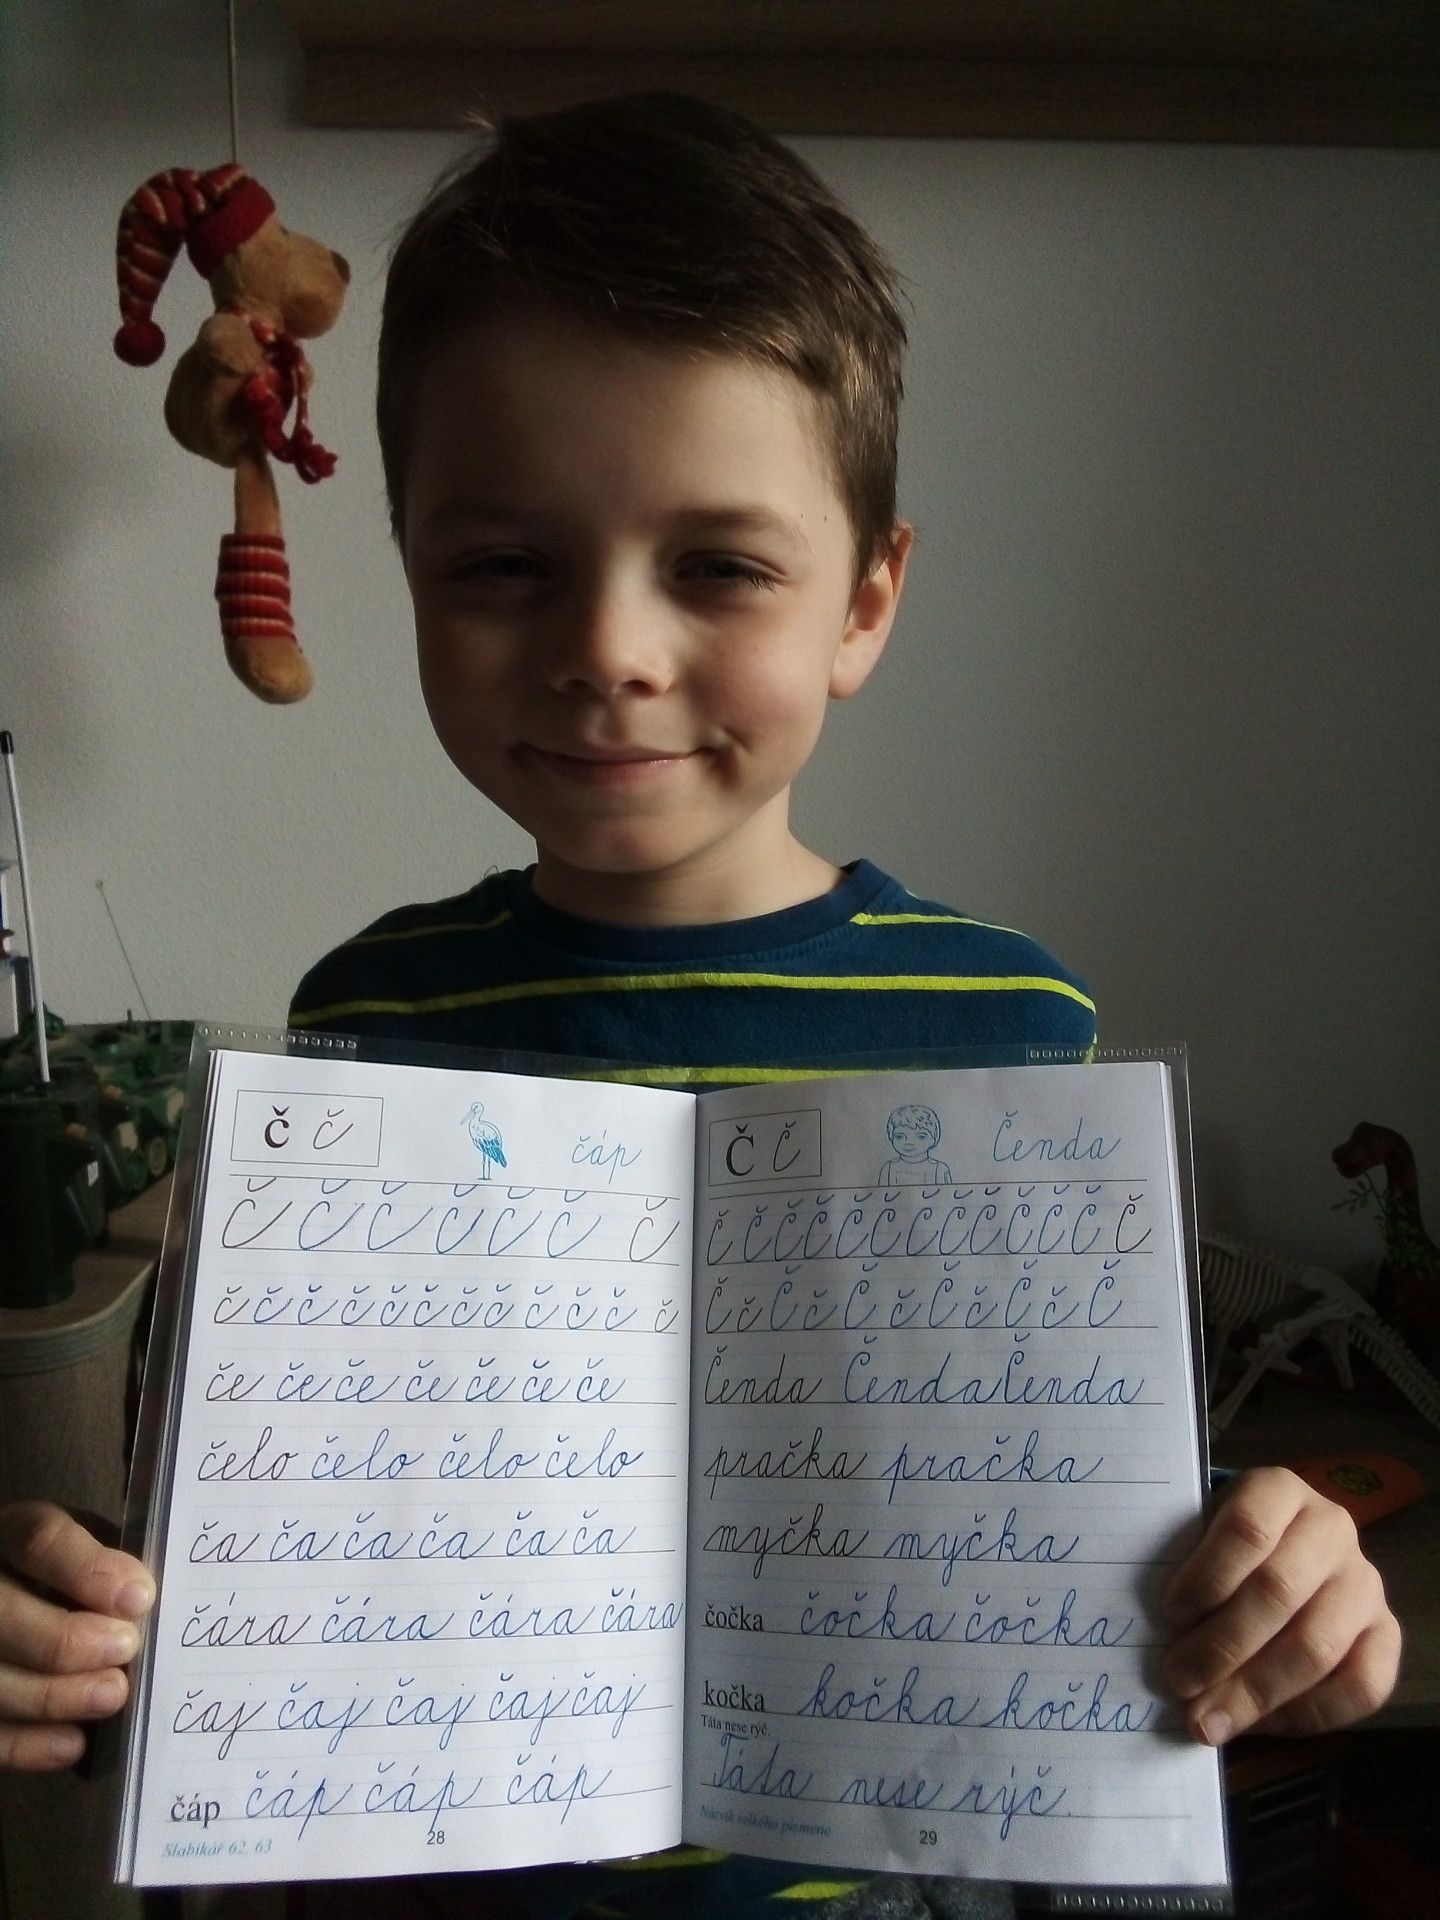 č č čáp
č č č č č č č
č č č č č č č č č č č č
če če če če če če če
čelo čelo čelo čelo
ča ča ča ča ča ča
čára čára čára čára
čaj čaj čaj čaj čaj
čáp čáp čáp čáp
Slabikář 62, 63
28
Č Č Čenda
Č Č Č Č Č Č Č Č Č Č Č Č Č
Č č Č č Č č Č č Č č Č
Čenda Čenda Čenda
pračka pračka
myčka myčka
čočka čočka čočka
kočka kočka kočka
Táta nese rýč.
Táta nese rýč.
Nácvik velkého písmene
29